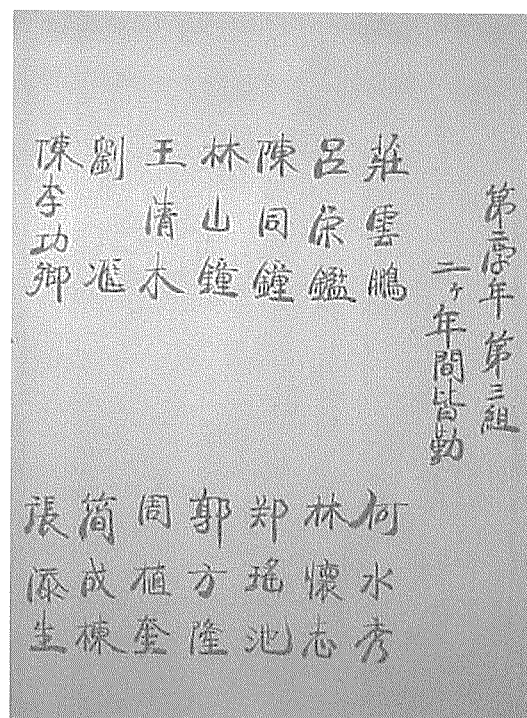 第二学年第三組
二ヶ年間皆勤
莊雲鵬
呂榮鑑
陳同鐘
林山鐘
王清木
劉滙
陳李功鄉
何水秀
林懷志
郑瑤池
郭方隆
周植奎
簡成棟
張添生